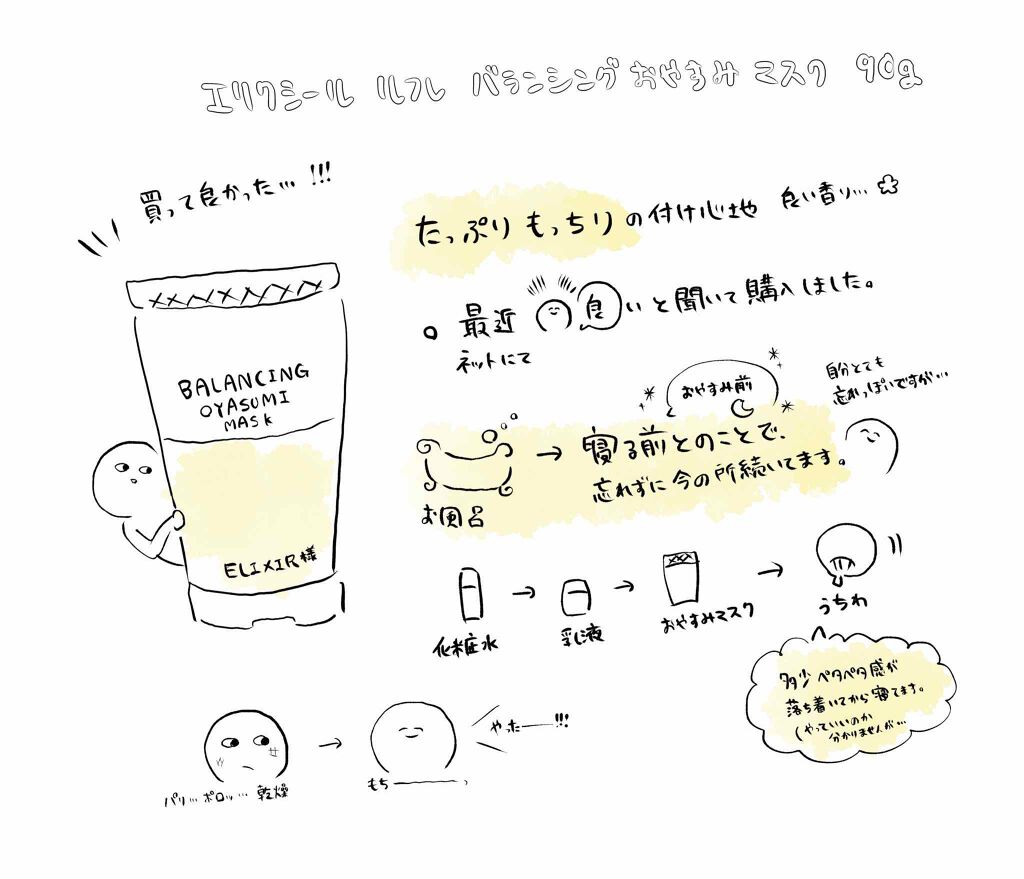 エリクシール ルフレ バランシング おやすみ マスク 90g
買って良かった…!!!
BALANCING
OYASUMI
MASK
ELIXIR様
たっぷり もっちり の付け心地 良い香り…
最近 良 いと聞いて購入しました。
ネットにて
おやすみ前
自分とても
忘れっぽいですが…
お風呂
→ 寝る前とのことで、
忘れずに今の所続いてます。
化粧水 → 乳液 → おやすみマスク → うちわ
多少 ペタペタ感が
落ち着いてから寝てます。
(やっていいのか
分かりませんが…
パリ…ポロッ…乾燥
→
もち――――、
やったー――!!!